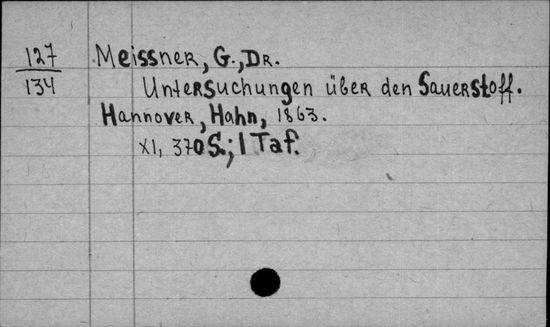 127 Meissner, G., Dr.
134 Untersuchungen über den Sauerstoff.
Hannover, Hahn, 1863.
XI, 370 S.; 1 Taf.